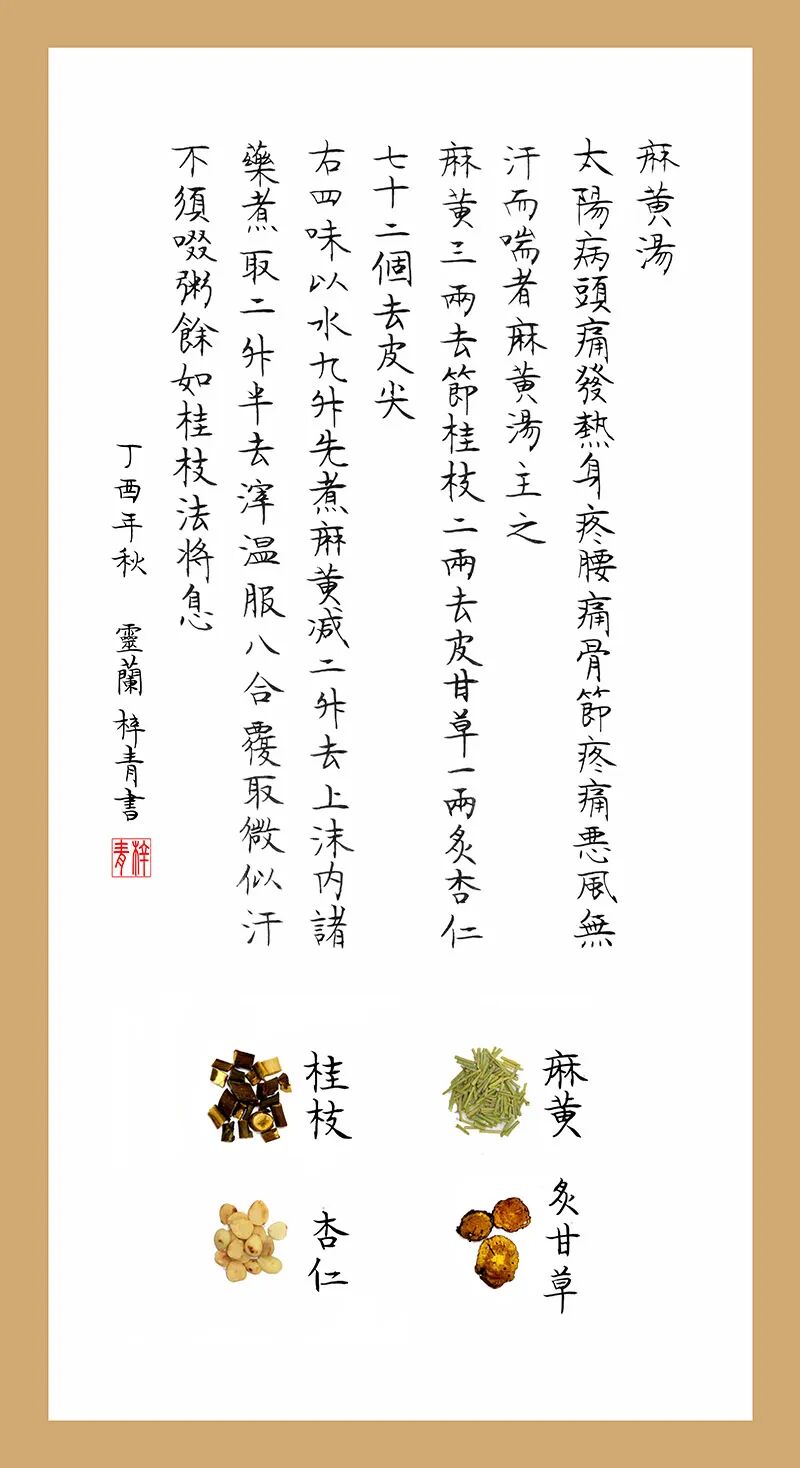 麻黃湯
太陽病頭痛發熱身疼腰痛骨節疼痛惡風無
汗而喘者麻黃湯主之
麻黃三兩去節桂枝二兩去皮甘草一兩炙杏仁
七十二個去皮尖
右四味以水九升先煮麻黃減二升去上沫内諸
藥煮取二升半去滓温服八合覆取微似汗
不須啜粥餘如桂枝法将息
丁酉年秋 靈蘭梓青書
梓青
麻黃
桂枝
炙甘草
杏仁